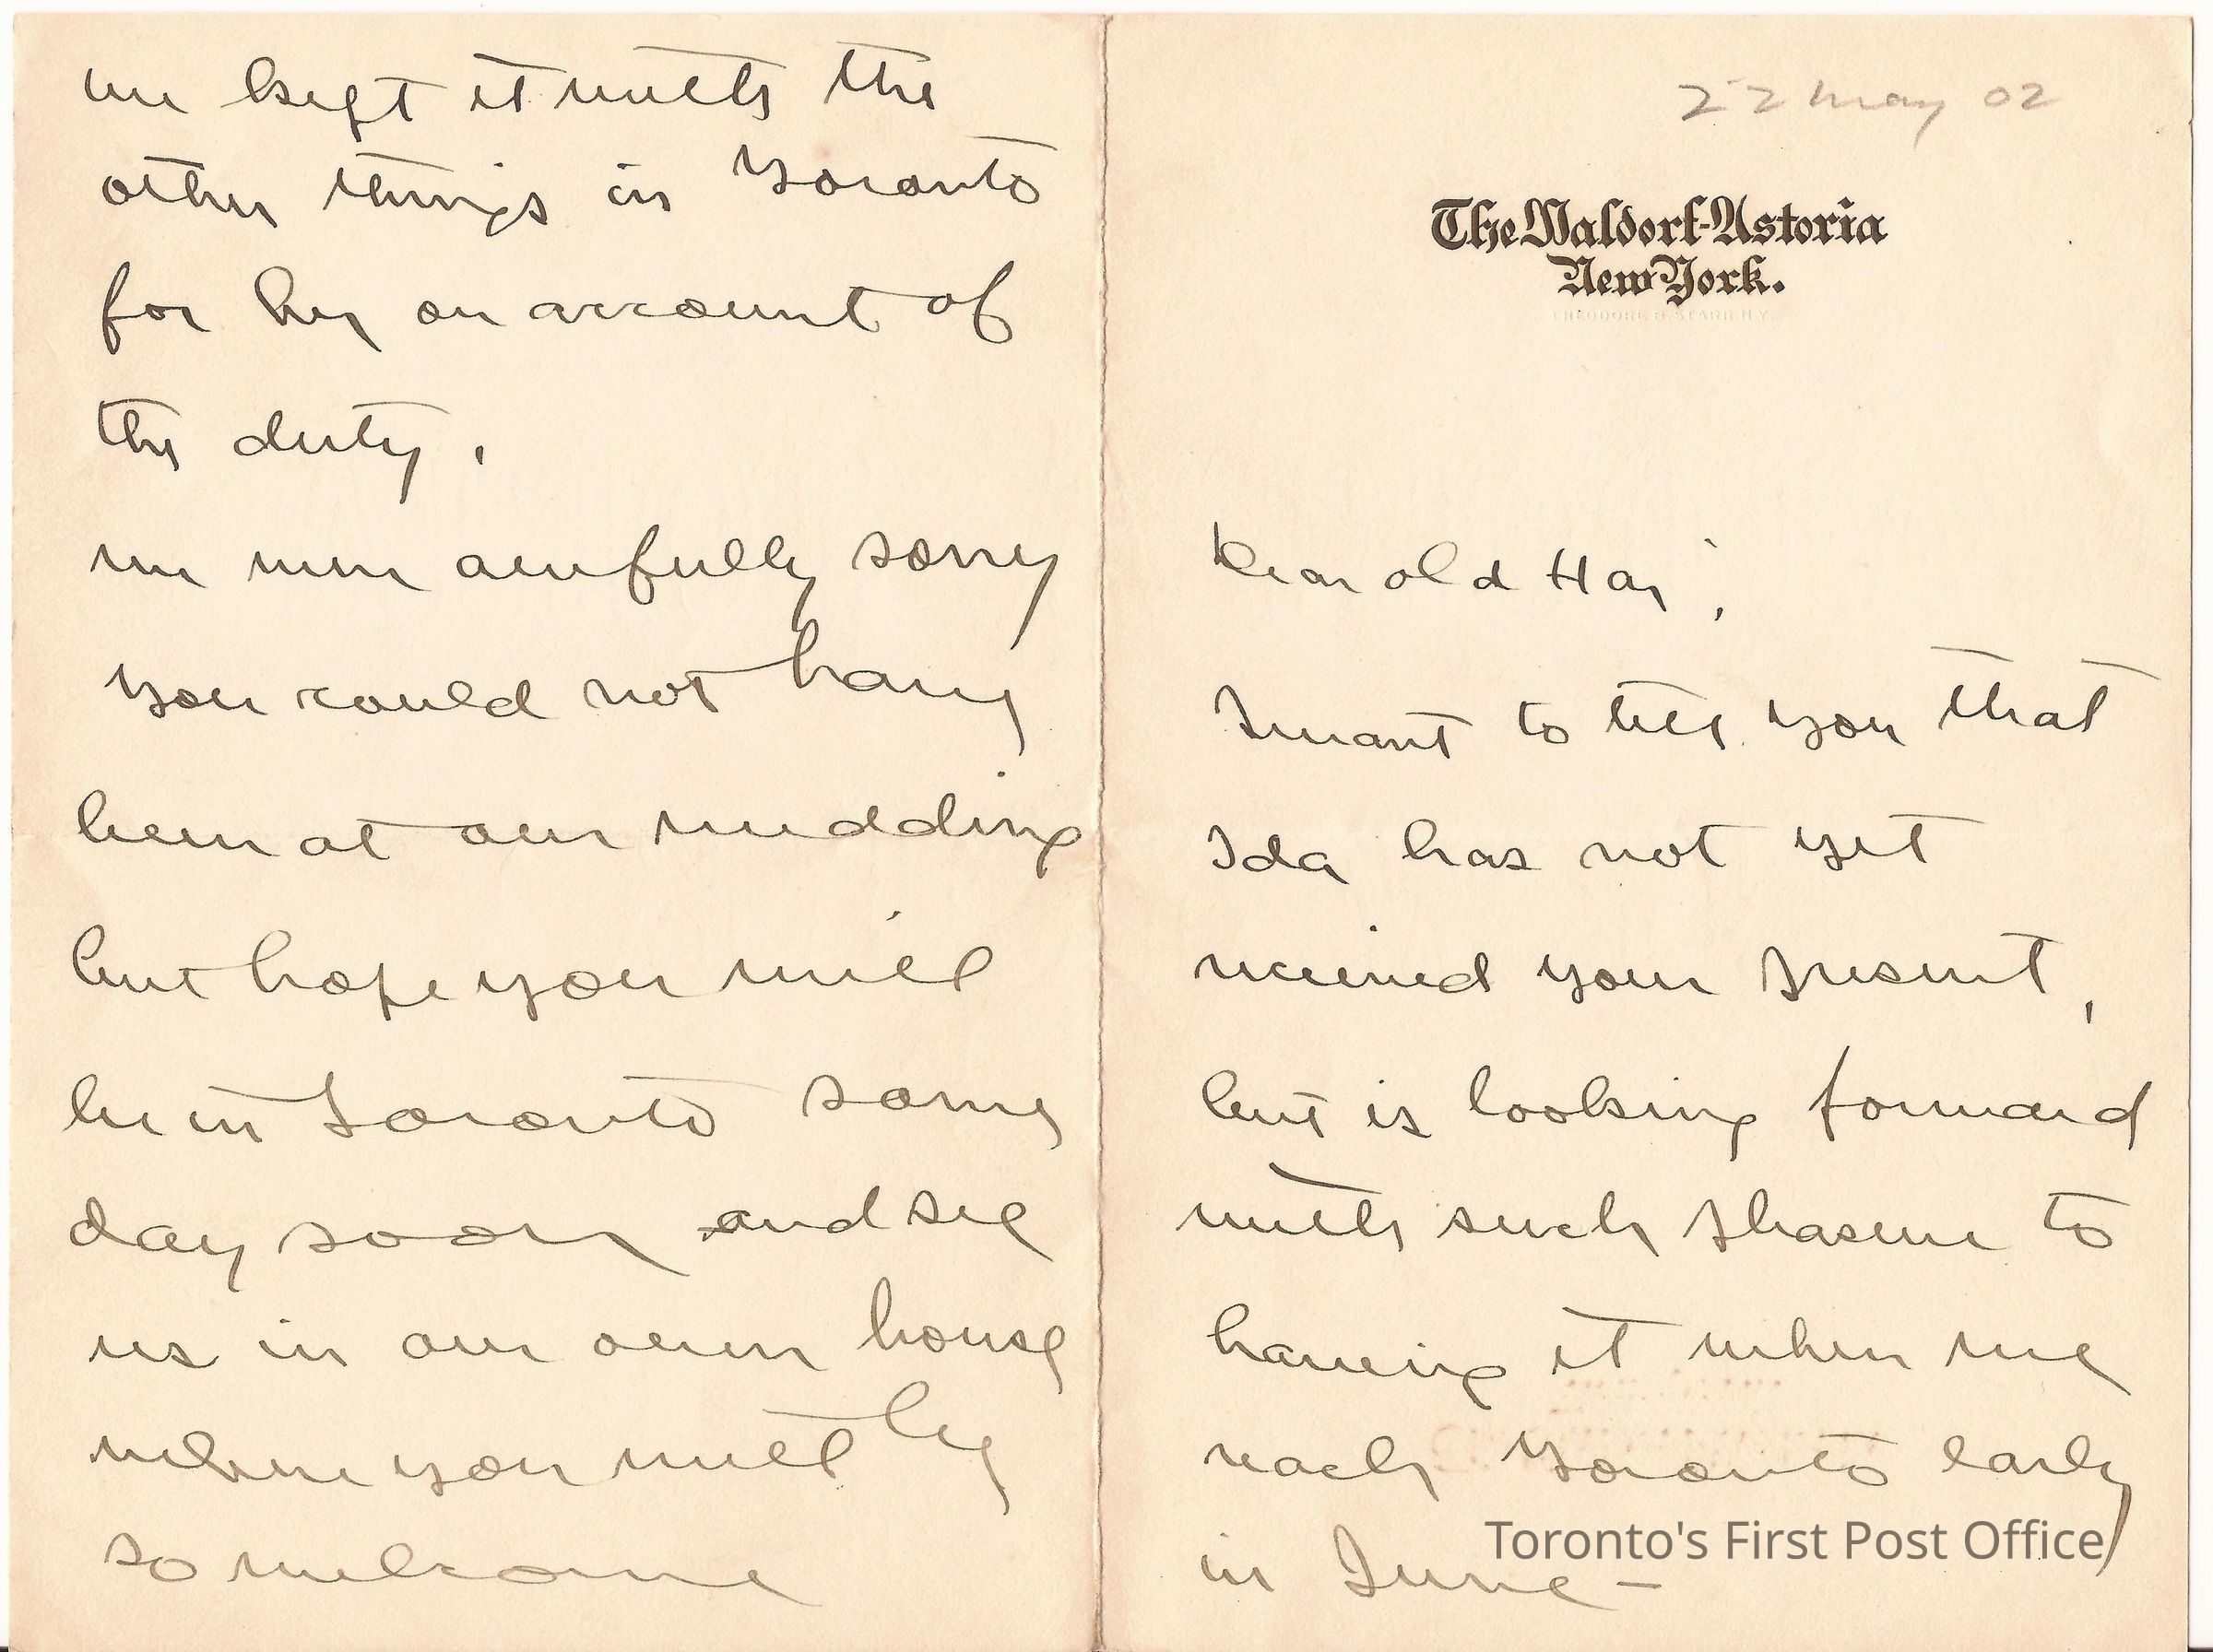 22 May 02
The Waldorf-Astoria
New York.
THEODORE B. STARR. N.Y.
Dear old
I want to tell you that
Ida has not yet
received your present,
but is looking forward
with such pleasure to
having it when we
reach Toronto early
in June –
Toronto's First Post Office
we kept it with the
other things in Toronto
for her on account of
the duty.
we were awfully sorry
you could not have
been at our wedding
but hope you will
be in Toronto some
day soon and see
us in our own house
where you will be
so welcome